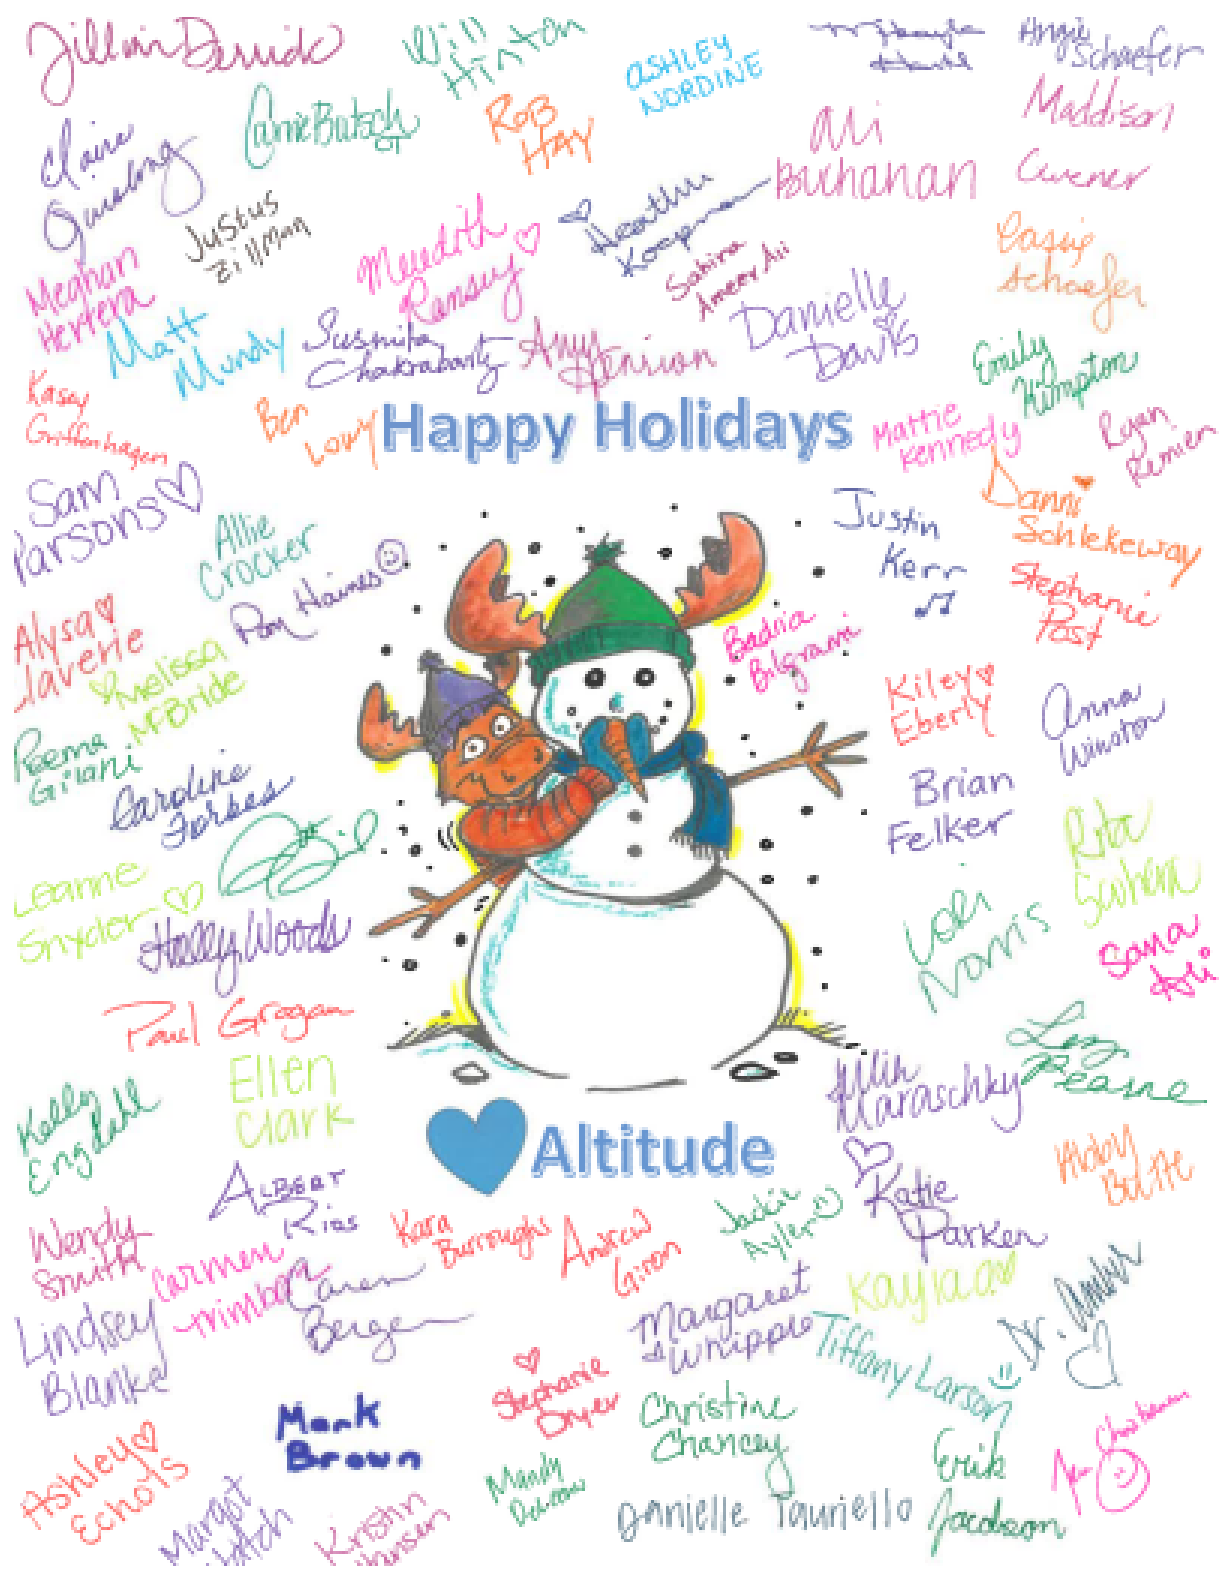 Jillian Derrick
Will
Hinton
ASHLEY
NORDINE
Angie
Schaefer
Carrie Butsch
OT
ROB
HAY
Ali
Buchanan
Maddison
Claire
Justus
Zillman
Meredith
Ramsey
Heather
Koopman
Sabina
Ameer Ali
Casie
Schaefer
Meghan
Herrera
Matt
Mundy
Susmita
Chakrabarty
Amy
Henrion
Danielle
Davis
Emily
Kimpton
Kasey
Griffenhagen
Ben
Lowy
Happy Holidays
Mattie
Kennedy
Ryan
Remien
Sam
Parsons
Allie
Crocker
Justin
Kerr
Danni
Schlekeway
Haines
Stephanie
Post
Alysa
Laverie
Melissa
McBride
Badria
Bilgrami
Kiley
Eberly
Anna
Winston
Reema
Gilani
Caroline
Forbes
Brian
Felker
Rita
Leanne
Snyder
Holly Woods
Lori
Norris
Sana
Ali
Paul Grogan
Ellen
Clark
Julia
Maraschky
Kelly
Engdahl
Altitude
Albert
Rios
Katie
Parker
Abby
Botte
Wendy
Smith
Carmen
Kara
Burroughs
Andrew
Giron
Jackie
Ayler
Caren
Bergen
Margaret
Whipple
Kayla
Dr. Amber
Lindsey
Blanke
Stephanie
Dryer
Tiffany Larson
Mark
Brown
Christine
Chancey
Ashley
Echols
Margot
Kristin
Hansen
Mandy
Danielle Tauriello
Erik
Jacobson